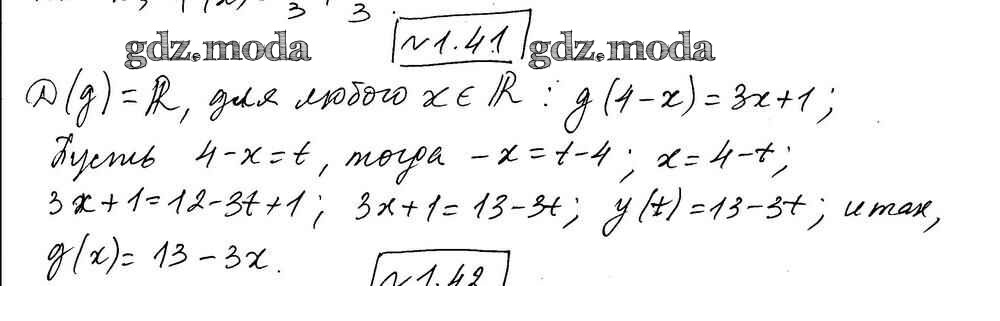 №1.41
gdz.moda gdz.moda
D(g) = ℝ, для любого x ∈ ℝ : g(4-x) = 3x+1;
Пусть 4-x=t, тогда -x=t-4; x=4-t;
3x+1=12-3t+1; 3x+1=13-3t; y(t)=13-3t; итак,
g(x)= 13-3x.
№1.42